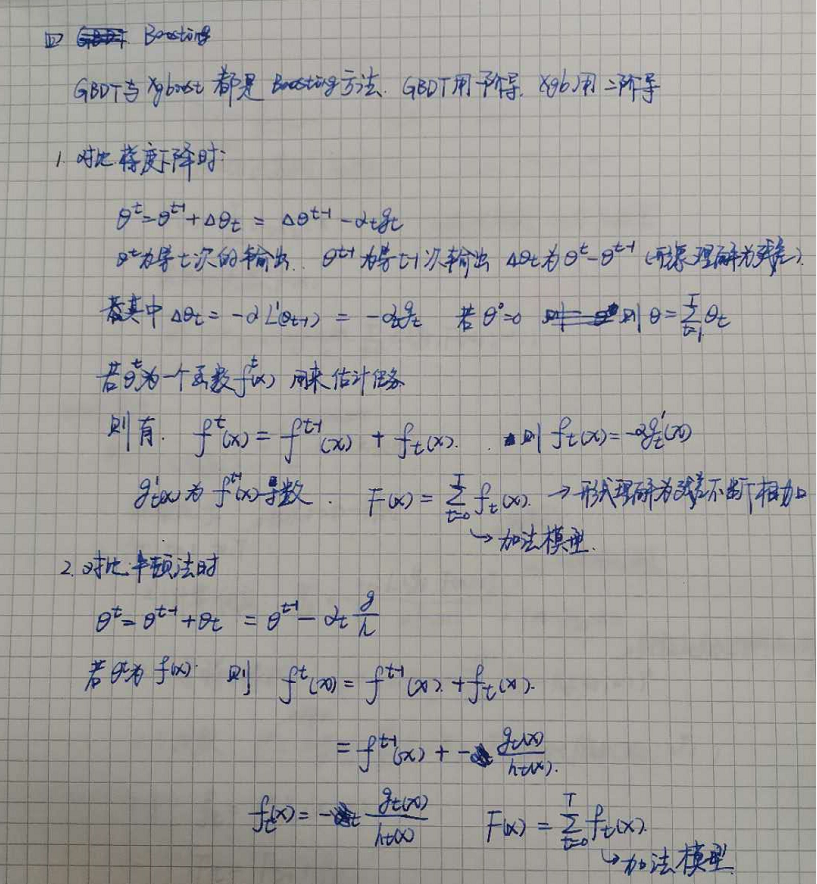 四 Boosting
GBDT与Xgboost 都是 Boosting方法. GBDT用一阶导. Xgb用二阶导
1. 对比梯度下降时:
θ^t = θ^{t-1} + Δθ_t = Δθ^{t-1} - α_t g_t
θ^t为第t次的输出. θ^{t-1} 为第t-1次输出 Δθ_t 为 θ^t - θ^{t-1} (形象理解为残差).
其中 Δθ_t = -α L'(θ_{t-1}) = -α_t g_t 若 θ^0=0 则 θ = Σ_{t=1}^{T} θ_t
若θ^t为一个函数 f^t(x) 用来估计任务
则有. f^t(x) = f^{t-1}(x) + f_t(x). 则 f_t(x) = -α g_t'(x)
g_t'(x) 为 f^{t-1}(x) 导数. F(x) = Σ_{t=0}^{T} f_t(x). → 形式理解为残差不断相加
↳ 加法模型.
2. 对比牛顿法时
θ^t = θ^{t-1} + θ_t = θ^{t-1} - α_t g/h
若θ^t为 f(x). 则 f^t(x) = f^{t-1}(x) + f_t(x).
= f^{t-1}(x) + - g_t(x)/h_t(x).
f_t(x) = - g_t(x)/h_t(x) F(x) = Σ_{t=0}^{T} f_t(x).
↳ 加法模型